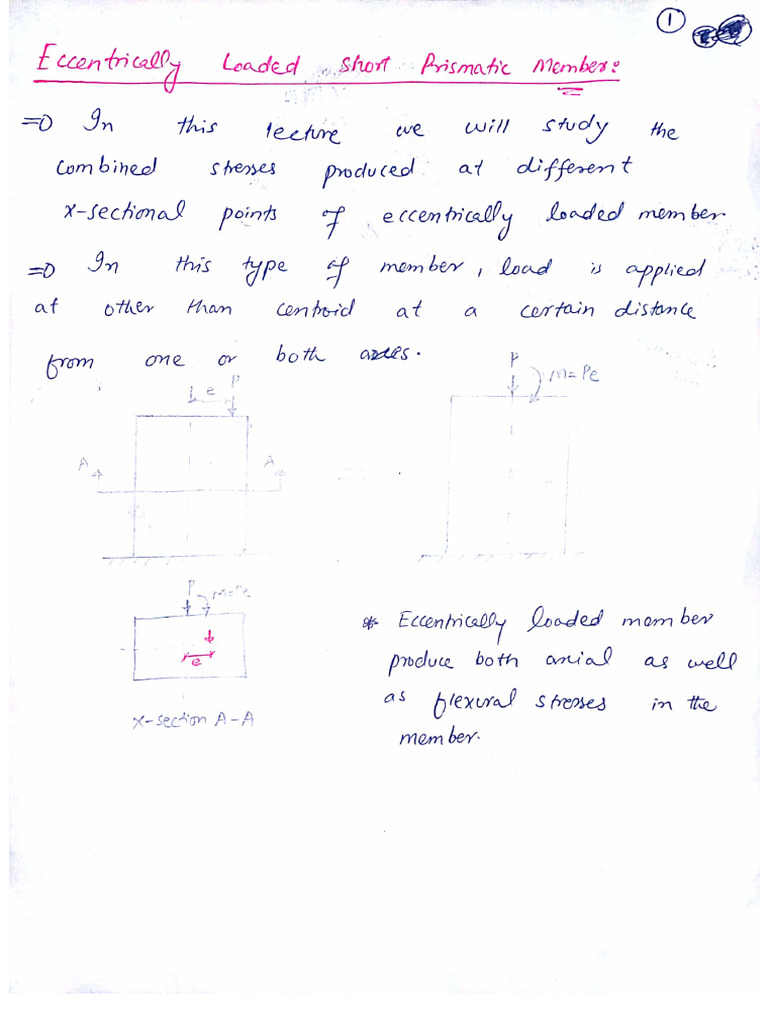 1
Eccentrically Loaded Short Prismatic Member:
=> In this lecture we will study the
combined stresses produced at different
x-sectional points of eccentrically loaded member
=> In this type of member, load is applied
at other than centroid at a certain distance
from one or both axes.
P
e
P
M=Pe
A
A
P
M=Pe
e
x-section A-A
* Eccentrically loaded member
produce both axial as well
as flexural stresses in the
member.